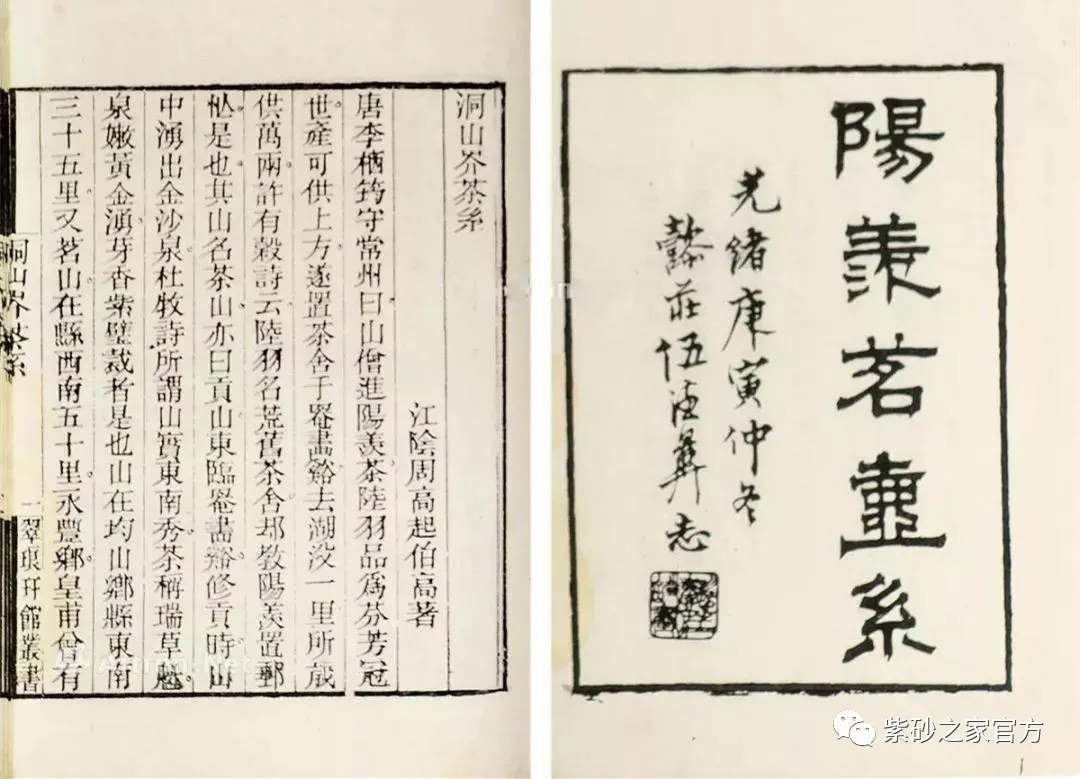 陽羨茗壺系
光緒庚寅仲冬
懿莊伍德彝志
洞山岕茶系
江陰周高起伯高著
唐李栖筠守常州曰山僧進陽羨茶陸羽品爲芬芳冠
世產可供上方遂置茶舍于罨畫谿去湖没一里所歲
供萬兩許有穀詩云陸羽名荒舊茶舍却教陽羨置郵
忙是也其山名茶山亦曰貢山東臨罨畫谿修貢時山
中湧出金沙泉杜牧詩所謂山實東南秀茶稱瑞草魁
泉嫩黃金湧芽香紫璧裁者是也山在均山鄉縣東南
三十五里又茗山在縣西南五十里永豐鄉皇甫曾有
洞山岕茶系
一
翠琅玕館叢書
紫砂之家官方